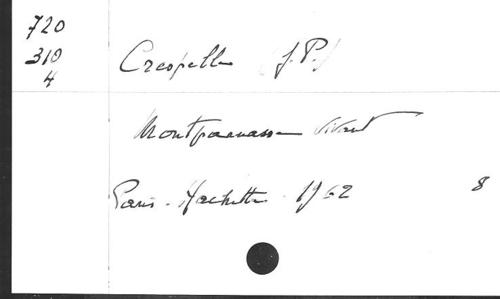 720
310
4
Crespelle (J.P.)
Montparnasse vivant
Paris - Hachette - 1962 8